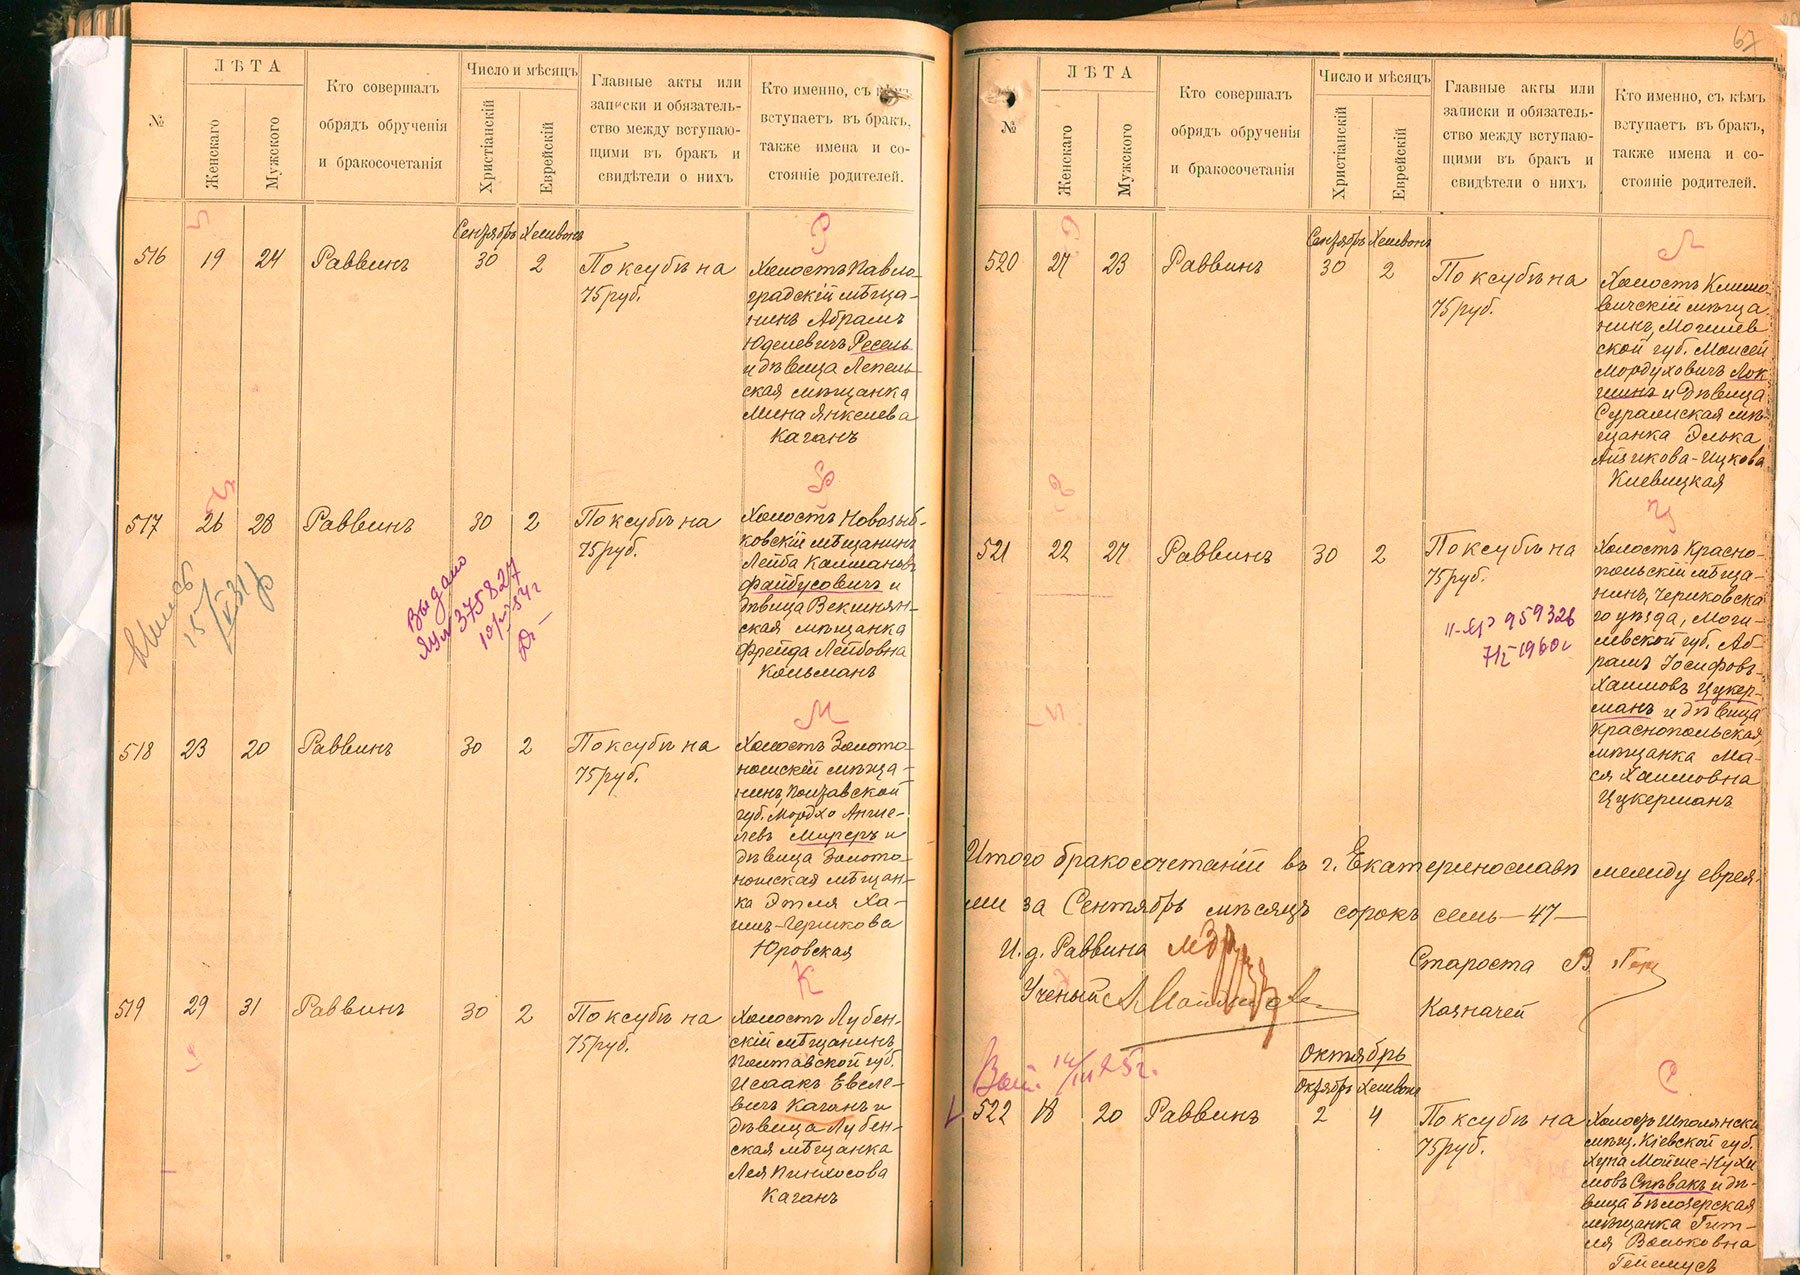 №
ЛѢТА
Женскаго
Мужского
Кто совершалъ
обрядъ обрученія
и бракосочетанія
Число и мѣсяцъ
Христіанскій
Еврейскій
Главные акты или
записки и обязатель-
ство между вступаю-
щими въ бракъ и
свидѣтели о нихъ
Кто именно, съ кѣмъ
вступаетъ въ бракъ,
также имена и со-
стояніе родителей.
Сентябрь Хешвонъ
Р
516 19 24 Раввинъ 30 2 По ксубѣ на
75 руб.
Холостъ Павло-
градскій мѣща-
нинъ Абрамъ
Юделевичъ Ресель
и дѣвица Лепель-
ская мѣщанка
Мина Янкелева
Каганъ
Ф
517 26 28 Раввинъ 30 2 По ксубѣ на
75 руб.
Холостъ Новозыб-
ковскій мѣщанинъ
Лейба Калмановъ
Файбусовичъ и
дѣвица
ская мѣщанка
Фрейда Лейбовна
Кельманъ
Выдано
375827
М
518 23 20 Раввинъ 30 2 По ксубѣ на
75 руб.
Холостъ Золото-
ношскій мѣща-
нинъ, Полтавской
губ. Мордхо Анше-
левъ Миреръ и
дѣвица Золото-
ношская мѣщан-
ка Этля Ха-
им-Черикова
Юровская
К
519 29 31 Раввинъ 30 2 По ксубѣ на
75 руб.
Холостъ Лубен-
скій мѣщанинъ
Полтавской губ.
Исаакъ Евсее-
вичъ Каганъ и
дѣвица Лубен-
ская мѣщанка
Лея Пинхосова
Каганъ
67
№
ЛѢТА
Женскаго
Мужского
Кто совершалъ
обрядъ обрученія
и бракосочетанія
Число и мѣсяцъ
Христіанскій
Еврейскій
Главные акты или
записки и обязатель-
ство между вступаю-
щими въ бракъ и
свидѣтели о нихъ
Кто именно, съ кѣмъ
вступаетъ въ бракъ,
также имена и со-
стояніе родителей.
Сентябрь Хешвонъ
Л
520 27 23 Раввинъ 30 2 По ксубѣ на
75 руб.
Холостъ Климо-
вичскій мѣща
нинъ, Могилев
ской губ. Моисей
Мордуховичъ Лок
шинъ и дѣвица
Суражская мѣ-
щанка Элька
Айзикова-Ицкова
Киевицкая
Ц
521 22 27 Раввинъ 30 2 По ксубѣ на
75 руб.
Холостъ Красно-
польскій мѣща-
нинъ, Чериковска
го уѣзда, Моги-
левской губ. Аб-
рамъ Іосифовъ-
Хаимовъ Цукер-
манъ и дѣвица
Краснопольская,
мѣщанка Ма-
ся Хаимовна
Цукерманъ
959326
Итого бракосочетаній въ г. Екатеринославѣ между еврея-
ми за Сентябрь мѣсяцъ сорокъ семь — 47 —
И. д. Раввина
Староста В.
Ученый
Казначей
Октябрь
Октябрь Хешвонъ
С
522 18 20 Раввинъ 2 4 По ксубѣ на
75 руб.
Холостъ Шполянскій
мѣщ. Кіевской губ.
Хуна Мойше-Нухи
мовъ Спѣвакъ и дѣ-
вица Бѣлозерская
мѣщанка Гит-
ля Вольковна